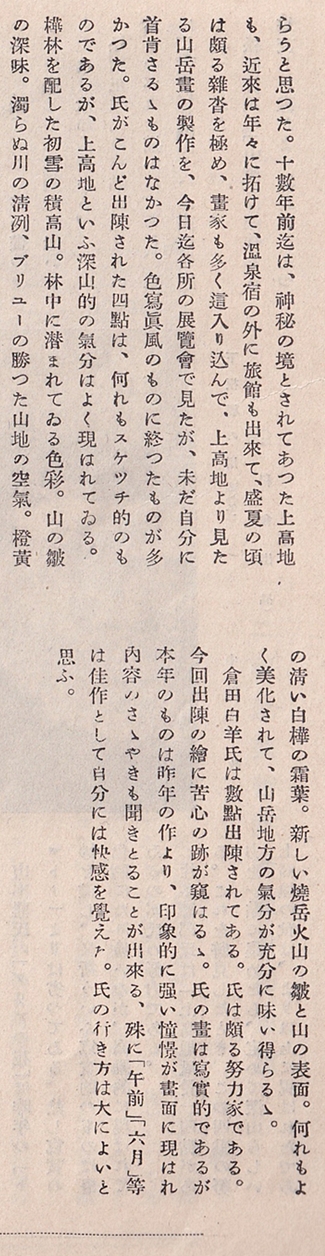 らうと思つた。十數年前迄は、神秘の境とされてあつた上高地
も、近來は年々に拓けて、溫泉宿の外に旅館も出來て、盛夏の頃
は頗る雜沓を極め、畫家も多く這入り込んで、上高地より見た
る山岳畫の製作を、今日迄各所の展覽會で見たが、未だ自分に
首肯さるゝものはなかつた。色寫眞風のものに終つたものが多
かつた。氏がこんど出陳された四點は、何れもスケツチ的のも
のであるが、上高地といふ深山的の氣分はよく現はれてゐる。
樺林を配した初雪の積高山。林中に潜まれてゐる色彩。山の皺
の深味。濁らぬ川の淸冽、ブリユーの勝つた山地の空氣。橙黃
の淸い白樺の霜葉。新しい燒岳火山の皺と山の表面。何れもよ
く美化されて、山岳地方の氣分が充分に味い得らるゝ。
倉田白羊氏は數點出陳されてある。氏は頗る努力家である。
今回出陳の繪に苦心の跡が窺はるゝ。氏の畫は寫實的であるが
本年のものは昨年の作より、印象的に强い憧憬が畫面に現はれ
內容のさゝやきも聞きとることが出來る、殊に「午前」「六月」等
は佳作として自分には快感を覺えた。氏の行き方は大によいと
思ふ。